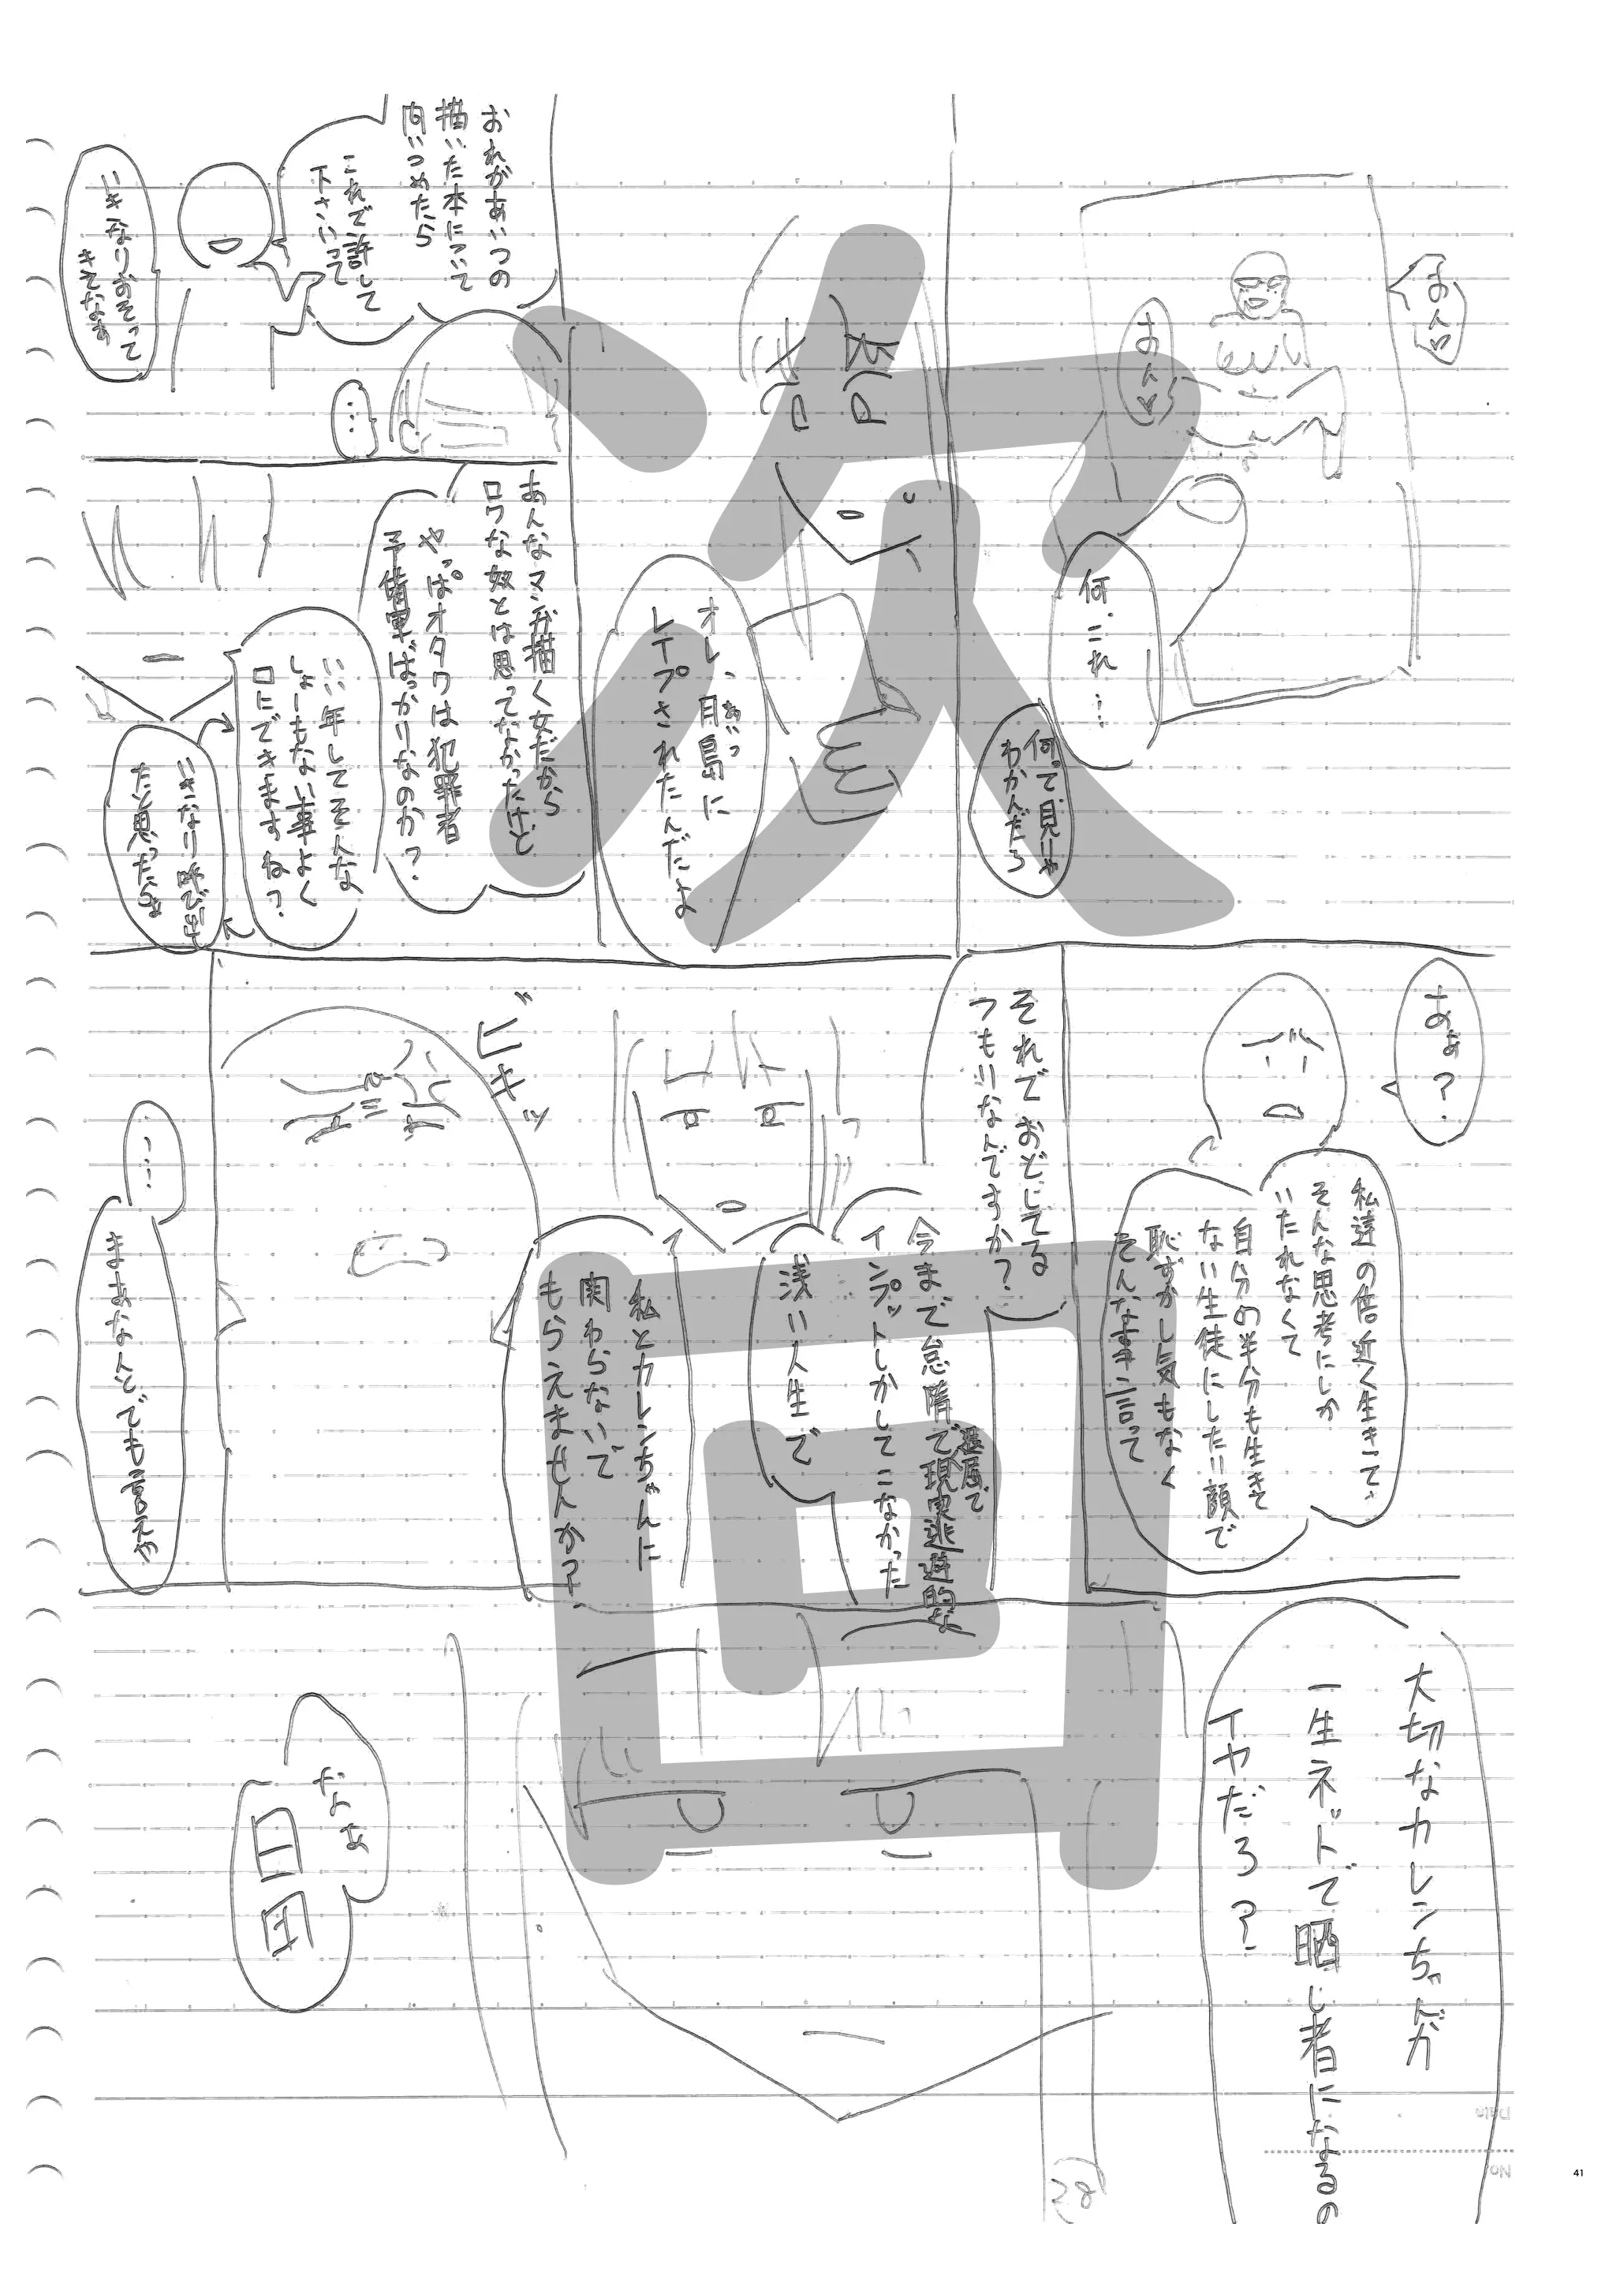 何、これ…
何って見りゃ
わかんだろ
オレ、目島に
あいつ
レイプされたんだよ
おれがあいつの
描いた本について
問いつめたら
これで許して
下さいって
いきなりおそって
きてなぁ
…
あんなマンガ描く女だから
ロクな奴とは思ってなかったけど
やっぱオタクは犯罪者
予備軍ばっかりなのか?
いい年してそんな
しょーもない事よく
口にできますね?
いきなり呼び出し
だと思ったら
あぁ?
私達の倍近く生きて
そんな思考にしか
いたれなくて
自分の半分も生きて
ない生徒にしたり顔で
恥ずかし気もなく
そんな事言って
それでおどしてる
つもりなんですか?
今まで怠惰で現実逃避的な
退屈で
インプットしかしてこなかった
浅い人生で
私とカレンちゃんに
関わらないで
もらえませんか?
ビキッ
…
まぁなんとでも言えや
大切なカレンちゃんが
一生ネットで晒し者になるの
イヤだろ?
なぁ
次回
38
Date
No.
41